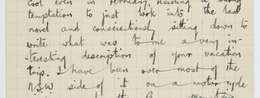 cool even in Germany, [having] a [strong]
temptation to just look into the last
novel and conscientiously sitting down to
write what was to me a very in-
teresting description of your vacation
trip. I have been over most of the
N.S.W side of it on a motor cycle